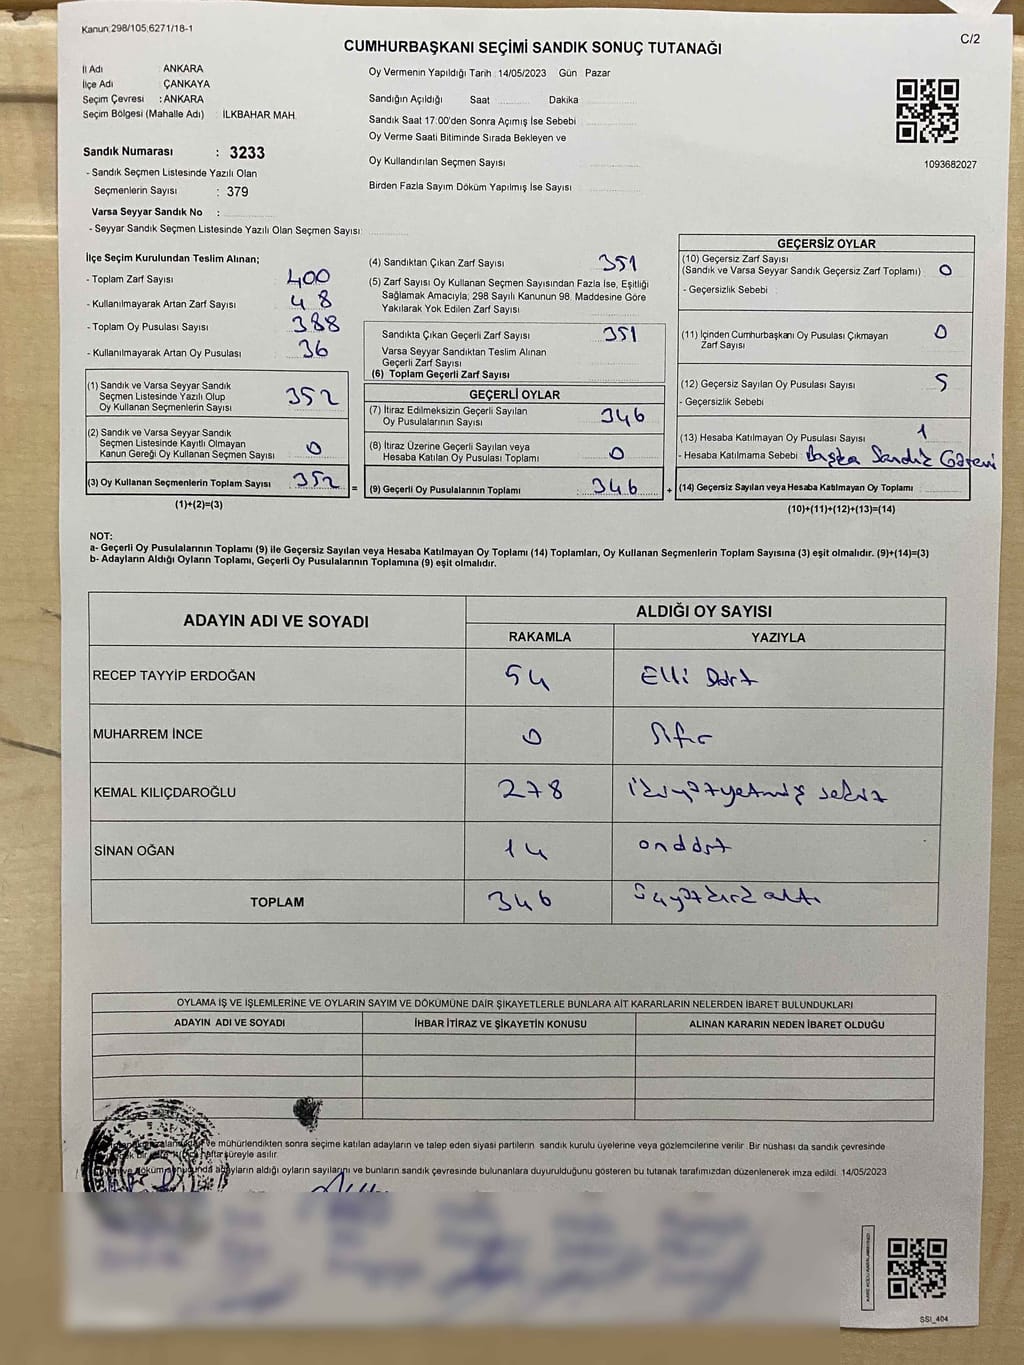 Kanun:298/105,6271/18-1
C/2
CUMHURBAŞKANI SEÇİMİ SANDIK SONUÇ TUTANAĞI
İl Adı : ANKARA
İlçe Adı : ÇANKAYA
Seçim Çevresi : ANKARA
Seçim Bölgesi (Mahalle Adı) : İLKBAHAR MAH.
Sandık Numarası : 3233
- Sandık Seçmen Listesinde Yazılı Olan
Seçmenlerin Sayısı : 379
Varsa Seyyar Sandık No :
- Seyyar Sandık Seçmen Listesinde Yazılı Olan Seçmen Sayısı:
Oy Vermenin Yapıldığı Tarih : 14/05/2023 Gün Pazar
Sandığın Açıldığı Saat Dakika
Sandık Saat 17:00'den Sonra Açımış İse Sebebi
Oy Verme Saati Bitiminde Sırada Bekleyen ve
Oy Kullandırılan Seçmen Sayısı
Birden Fazla Sayım Döküm Yapılmış İse Sayısı
1093682027
İlçe Seçim Kurulundan Teslim Alınan;
- Toplam Zarf Sayısı 400
- Kullanılmayarak Artan Zarf Sayısı 48
- Toplam Oy Pusulası Sayısı 388
- Kullanılmayarak Artan Oy Pusulası 36
(1) Sandık ve Varsa Seyyar Sandık
Seçmen Listesinde Yazılı Olup
Oy Kullanan Seçmenlerin Sayısı 352
(2) Sandık ve Varsa Seyyar Sandık
Seçmen Listesinde Kayıtlı Olmayan
Kanun Gereği Oy Kullanan Seçmen Sayısı 0
(3) Oy Kullanan Seçmenlerin Toplam Sayısı 352 =
(1)+(2)=(3)
(4) Sandıktan Çıkan Zarf Sayısı 351
(5) Zarf Sayısı Oy Kullanan Seçmen Sayısından Fazla İse, Eşitliği
Sağlamak Amacıyla; 298 Sayılı Kanunun 98. Maddesine Göre
Yakılarak Yok Edilen Zarf Sayısı
Sandıkta Çıkan Geçerli Zarf Sayısı 351
Varsa Seyyar Sandıktan Teslim Alınan
Geçerli Zarf Sayısı
(6) Toplam Geçerli Zarf Sayısı
GEÇERLİ OYLAR
(7) İtiraz Edilmeksizin Geçerli Sayılan
Oy Pusulalarının Sayısı 346
(8) İtiraz Üzerine Geçerli Sayılan veya
Hesaba Katılan Oy Pusulası Toplamı 0
(9) Geçerli Oy Pusulalarının Toplamı 346 +
GEÇERSİZ OYLAR
(10) Geçersiz Zarf Sayısı
(Sandık ve Varsa Seyyar Sandık Geçersiz Zarf Toplamı) 0
- Geçersizlik Sebebi
(11) İçinden Cumhurbaşkanı Oy Pusulası Çıkmayan
Zarf Sayısı 0
(12) Geçersiz Sayılan Oy Pusulası Sayısı 5
- Geçersizlik Sebebi
(13) Hesaba Katılmayan Oy Pusulası Sayısı 1
- Hesaba Katılmama Sebebi Başka Sandık Görevi
(14) Geçersiz Sayılan veya Hesaba Katılmayan Oy Toplamı
(10)+(11)+(12)+(13)=(14)
NOT:
a- Geçerli Oy Pusulalarının Toplamı (9) ile Geçersiz Sayılan veya Hesaba Katılmayan Oy Toplamı (14) Toplamları, Oy Kullanan Seçmenlerin Toplam Sayısına (3) eşit olmalıdır. (9)+(14)=(3)
b- Adayların Aldığı Oyların Toplamı, Geçerli Oy Pusulalarının Toplamına (9) eşit olmalıdır.
ADAYIN ADI VE SOYADI ALDIĞI OY SAYISI
RAKAMLA YAZIYLA
RECEP TAYYİP ERDOĞAN 54 Elli Dört
MUHARREM İNCE 0 Sıfır
KEMAL KILIÇDAROĞLU 278 İkiyüzyetmiş sekiz
SİNAN OĞAN 14 ondört
TOPLAM 346 Üçyüzkırk altı
OYLAMA İŞ VE İŞLEMLERİNE VE OYLARIN SAYIM VE DÖKÜMÜNE DAİR ŞİKAYETLERLE BUNLARA AİT KARARLARIN NELERDEN İBARET BULUNDUKLARI
ADAYIN ADI VE SOYADI İHBAR İTİRAZ VE ŞİKAYETİN KONUSU ALINAN KARARIN NEDEN İBARET OLDUĞU
ve mühürlendikten sonra seçime katılan adayların ve talep eden siyasi partilerin sandık kurulu üyelerine veya gözlemcilerine verilir. Bir nüshası da sandık çevresinde
hafta süreyle asılır.
adayların aldığı oyların sayılarını ve bunların sandık çevresinde bulunanlara duyurulduğunu gösteren bu tutanak tarafımızdan düzenlenerek imza edildi. 14/05/2023
SSI_404